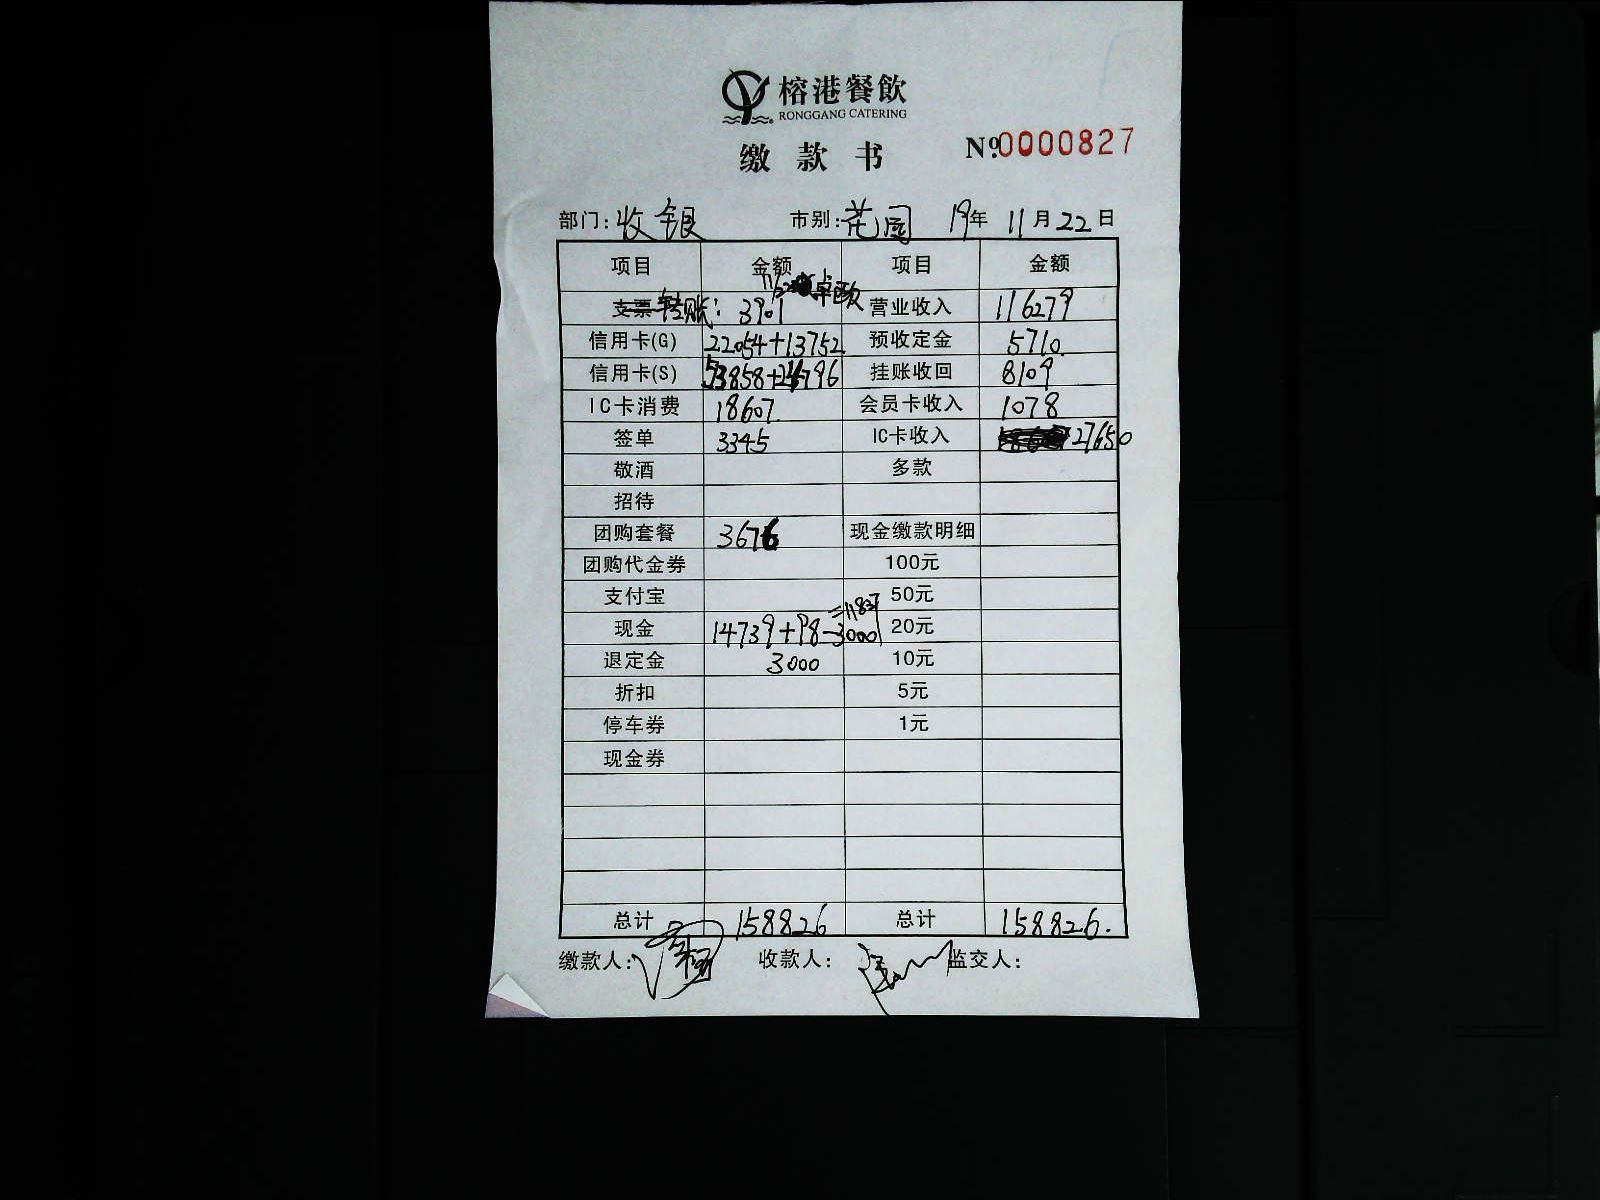 榕港餐飲
RONGGANG CATERING
缴款书 №0000827
部门: 收银 市别: 花园 19年 11月22日
项目 金额 项目 金额
11/22 卓欧
支票 转账: 3901 营业收入 116279
信用卡(G) 22054+13752 预收定金 5710.
信用卡(S) 53858+24796 挂账收回 8109
IC卡消费 18607. 会员卡收入 1078
签单 3345 IC卡收入 27650
敬酒 多款
招待
团购套餐 3676 现金缴款明细
团购代金券 100元
支付宝 50元
=11837
现金 14739+98-3000 20元
退定金 3000 10元
折扣 5元
停车券 1元
现金券
总计 158826 总计 158826.
缴款人: 收款人: 监交人: